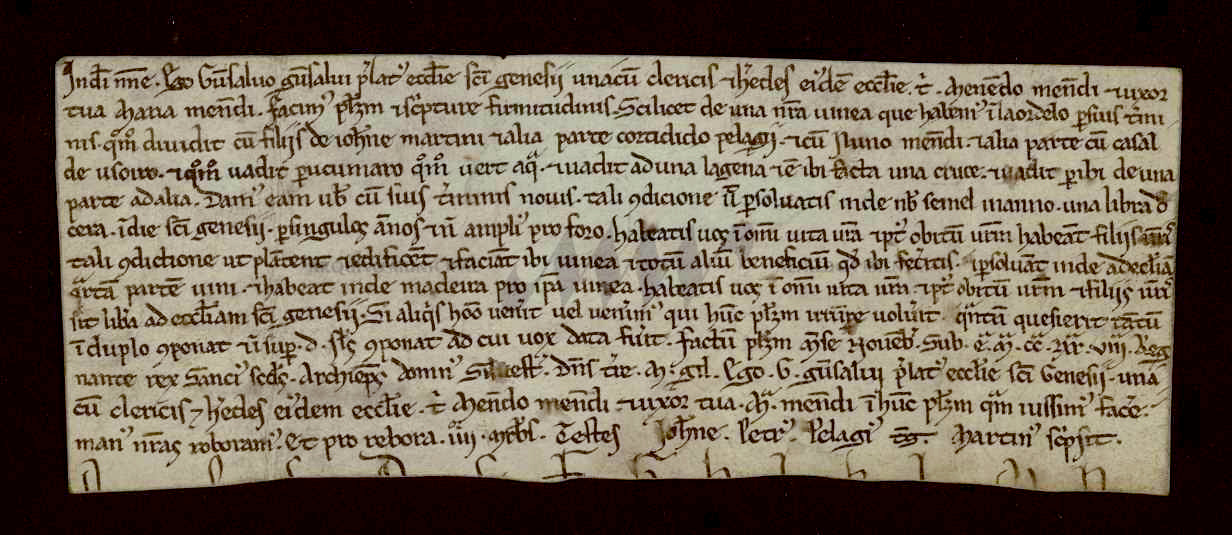 In dei nne. Ego Gunsaluo gunsalui p̃latꝰ eccłie sc̃i genesii una cũ clericis ⁊ h̾edes ei᾿dẽ eccłie. t̾. Menẽdo mẽndi. ⁊ uxor
tua Maria mẽndi. facimꝰ plazm ⁊ sc̾pture firmitudinis. Scilicet de una nr̃a uinea que habemꝰ ĩ laordelo p̱ suis t̾mi
nis. qͦmͦ diuidit cũ filiis de ioh̃ne martini ⁊ alia parte cor dido pelagii. ⁊ cũ Nuno mẽndi. ⁊ alia parte cũ casal
de usoiro. ⁊ qͦmͦ uadit p̱ cumaro qͦmͦ uert aq̃. ⁊ uadit ad una lagena ⁊ ẽ ibi facta una cruce. ⁊ uadit p̱ ibi de una
parte ad alia. Damꝰ eam uob̃ cũ suis t̾minis nouis. tali ꝯdicione ut p̱soluatis inde nob̃ semel in anno. una libra d̃
cera. ĩ die sc̃i genesii. p̱ singulos ãnos ⁊ ñ ampliꝰ pro foro. habeatis uos ĩ om̃i uita ur̃a ⁊ pt᾿ obitũ ur̃m habeãt filiis ur̃is
tali ꝯdictione ut plãtent ⁊ edificẽt ⁊ faciãt ibi uinea ⁊ totũ aliũ beneficiũ qd̾ ibi fec̾itis. ⁊ p̱soluãt inde ad eccłiã
q̃rtã partẽ uini. ⁊ habeat inde madeira pro ip̃a uinea. habeatis uos ĩ om̃i uita ur̃a ⁊ pt᾿ obitũ ur̃m ⁊ filiis ur̃is
sit lib̾a ad eccłiam sc̃i genesii. Si aliq̾s homo uen̾it uel uen̾imꝰ qui hũc plazm irrũp̱e uolu̾it. q̃ntũ quesierit tãtũ
ĩ duplo ꝯponat ⁊ ĩ sup̱. d. sl̃s ꝯponat ad cui uox data fu̾it. factũ plazm m̃se Nouẽb̾. Sub. e᾿.ã. Mͣ. cc. xͣ. viii. Reg
nante rex Sanciꝰ scd̃s. Archiep̃s dominꝰ Siluest᾿. Dñs t̾re. M. gil. Ego. G. gunsalui p̾latꝰ eccłie sc̃i Genesii. una
cũ clericis ⁊ h̾edes ei᾿dem eccłie. t̾. Menẽdo mẽndi. ⁊ uxor tua. Mͣ. mẽndi ĩ hũc plazm q̃m iussimꝰ fac̾e.
manꝰ nr̃as roboramꝰ. Et pro rebora. iiii. mrb̃s. Testes Ioh̃ne. Petrꝰ. Pelagiꝰ tg̃. Martinꝰ sc̾psit.